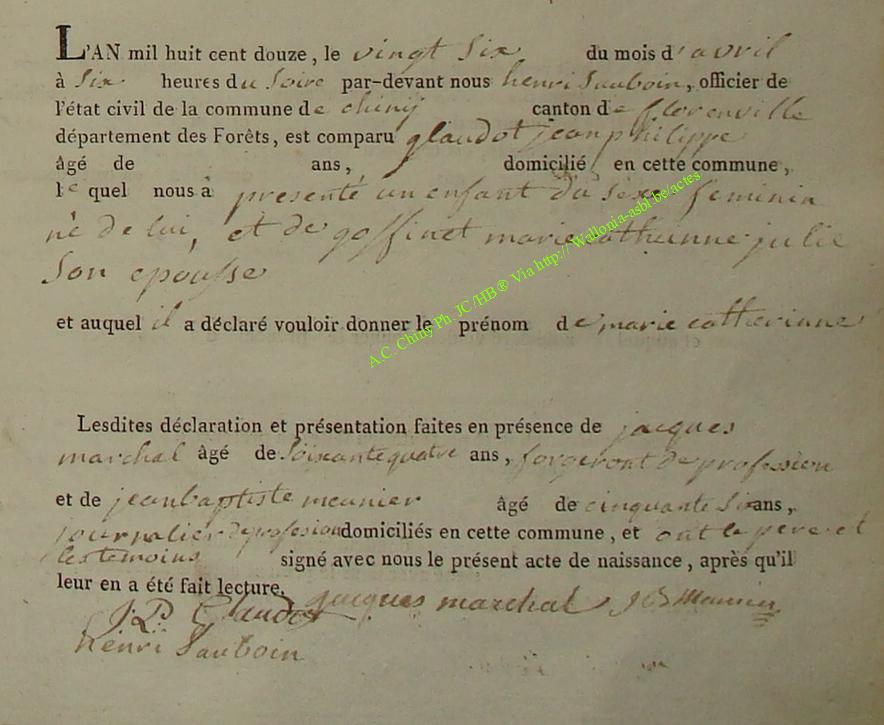 L'AN mil huit cent douze, le vingt Six du mois d'avril
à Six heures du Soire par-devant nous henri Sauboin, officier de
l'état civil de la commune de chiny canton de florenville
département des Forêts, est comparu glaudot jean philippe
âgé de ans, domicilié en cette commune,
le quel nous à presenté un enfant du sixe feminin
né de lui, et de goffinet marie catherinne julie
Son epousse
et auquel il a déclaré vouloir donner le prénom de marie catherinne
Lesdites déclaration et présentation faites en présence de jacques
marchal âgé de Soixante quatre ans, forgeront de profession
et de jean baptiste meunier âgé de cinquante Six ans,
journalier de profesion domiciliés en cette commune, et ont le pere et
les temoins signé avec nous le présent acte de naissance, après qu'il
leur en a été fait lecture.
J. P. Glaudot jacques marchal JB Meunier
henri Sauboin
A.C. Chiny Ph. JC/HB ® Via http:// Wallonia-asbl be/actes